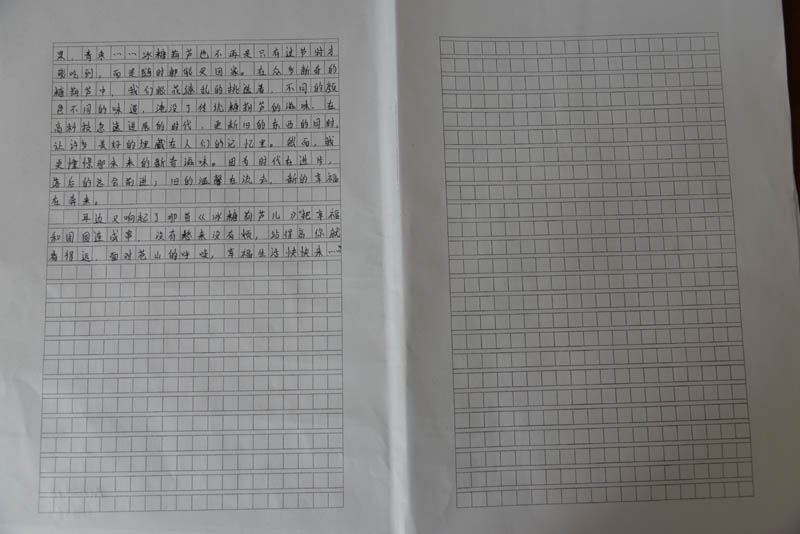 果，青枣……冰糖葫芦也不再是只有过节时才
能吃到，而是随时都能买回家。在众多新奇的
糖葫芦中，我们眼花缭乱的挑选着，不同的颜
色不同的味道，淹没了传统糖葫芦的滋味。在
高科技急速进展的时代，更新旧的东西的同时，
让许多美好的埋藏在人们的记忆里。然而，我
更憧憬那未来的新奇滋味。因为时代在进步，
落后的总会前进；旧的温馨在流去，新的幸福
在奔来。
耳边又响起了那首《冰糖葫芦儿》“把幸福
和团团连成串，没有愁来没有烦，站得高你就
看得远，面对苍山的呼唤，幸福生活快快来……”